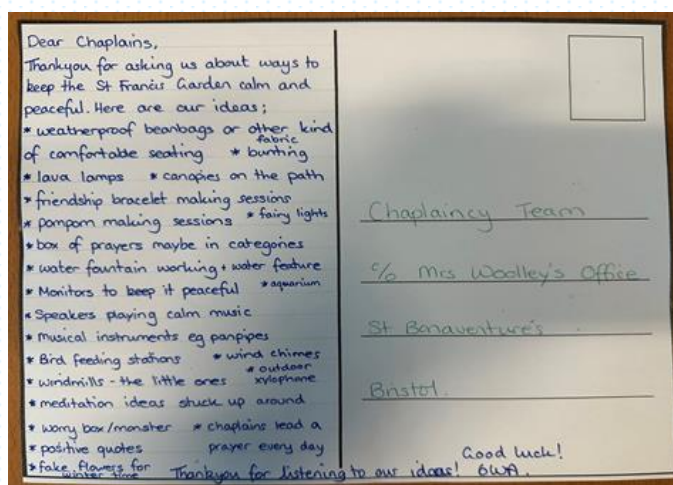 Dear Chaplains,
Thankyou for asking us about ways to
keep the St Francis Garden calm and
peaceful. Here are our ideas;
* weatherproof beanbags or other kind
of comfortable seating * fabric bunting
* lava lamps * canopies on the path
* friendship bracelet making sessions
* pompom making sessions * fairy lights
* box of prayers maybe in categories
* water fountain working + water feature
* Monitors to keep it peaceful * aquarium
* Speakers playing calm music
* Musical instruments eg panpipes
* Bird feeding stations * wind chimes
* windmills - the little ones * outdoor xylophone
* meditation ideas stuck up around
* worry box/monster * chaplains lead a
* positive quotes prayer every day
* fake flowers for
winter time
Thankyou for listening to our ideas! 6WA.
Good luck!
Chaplaincy Team
c/o Mrs Woolley's Office
St Bonaventure's
Bristol.